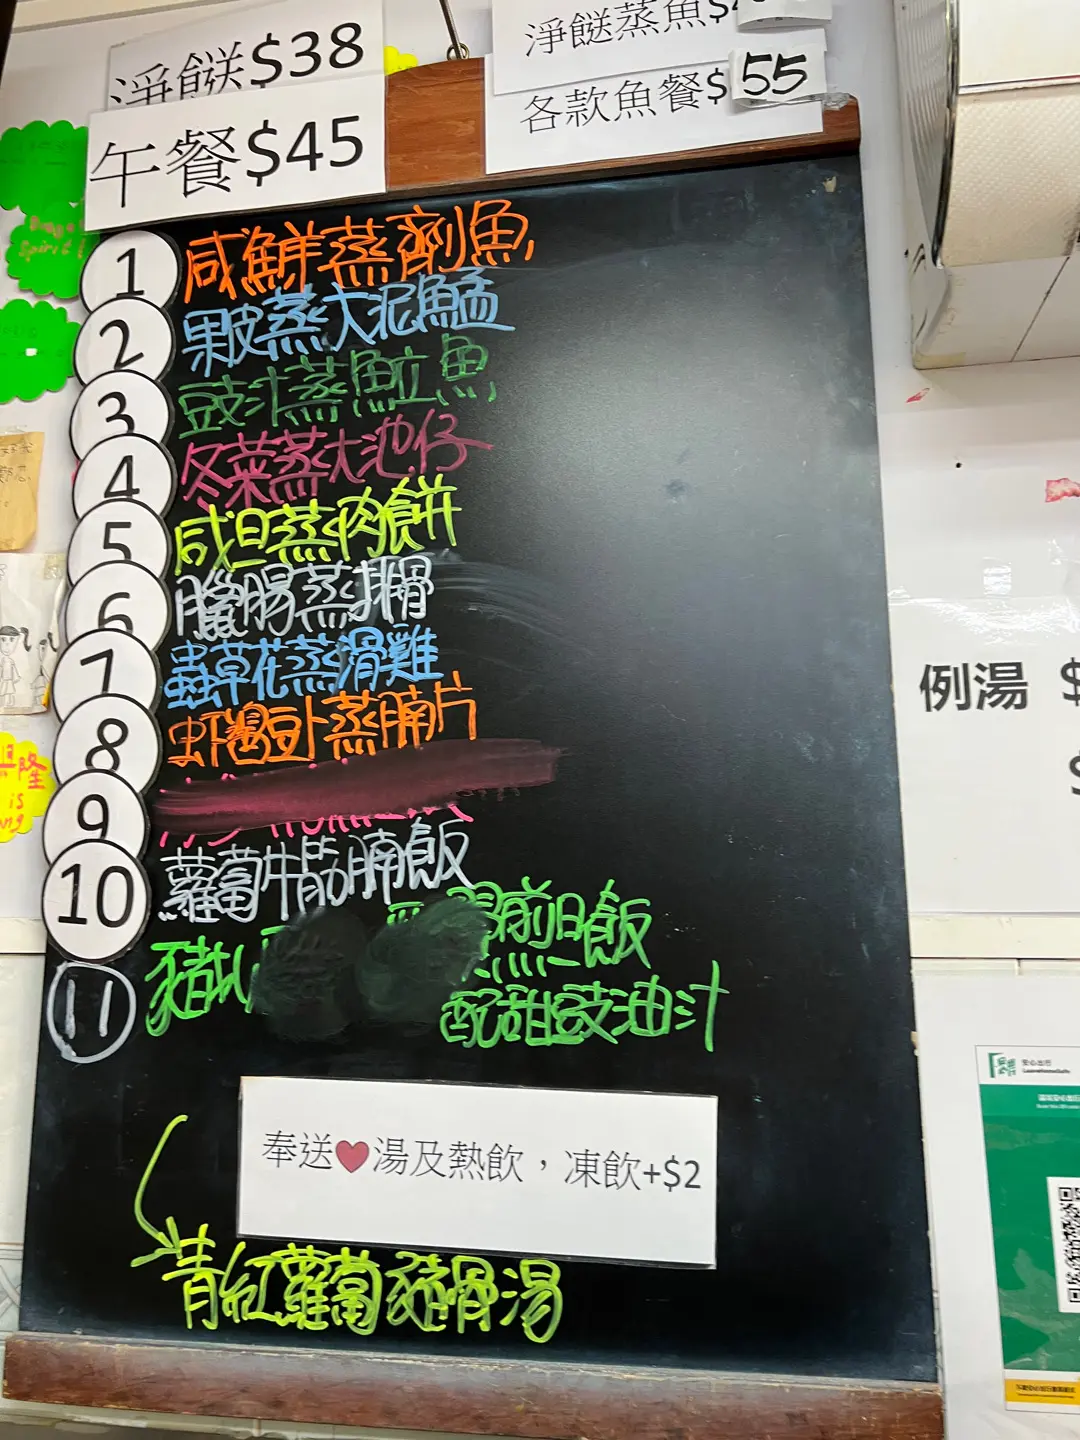 淨餸$38
淨餸蒸魚$
午餐$45
各款魚餐$55
1 咸鮮蒸劏魚
2 果皮蒸大泥鯭
3 豉汁蒸魚立魚
4 冬菜蒸大池仔
5 咸旦蒸肉餅
6 臘腸蒸排骨
7 蟲草花蒸滑雞
8 虾醬豆卜蒸腩片
9
10 蘿蔔牛筋腩飯
11 豬扒
煎旦飯
配甜豉油汁
奉送❤湯及熱飲，凍飲+$2
青紅蘿蔔豬骨湯
例湯 $
$
安心出行
LeaveHomeSafe